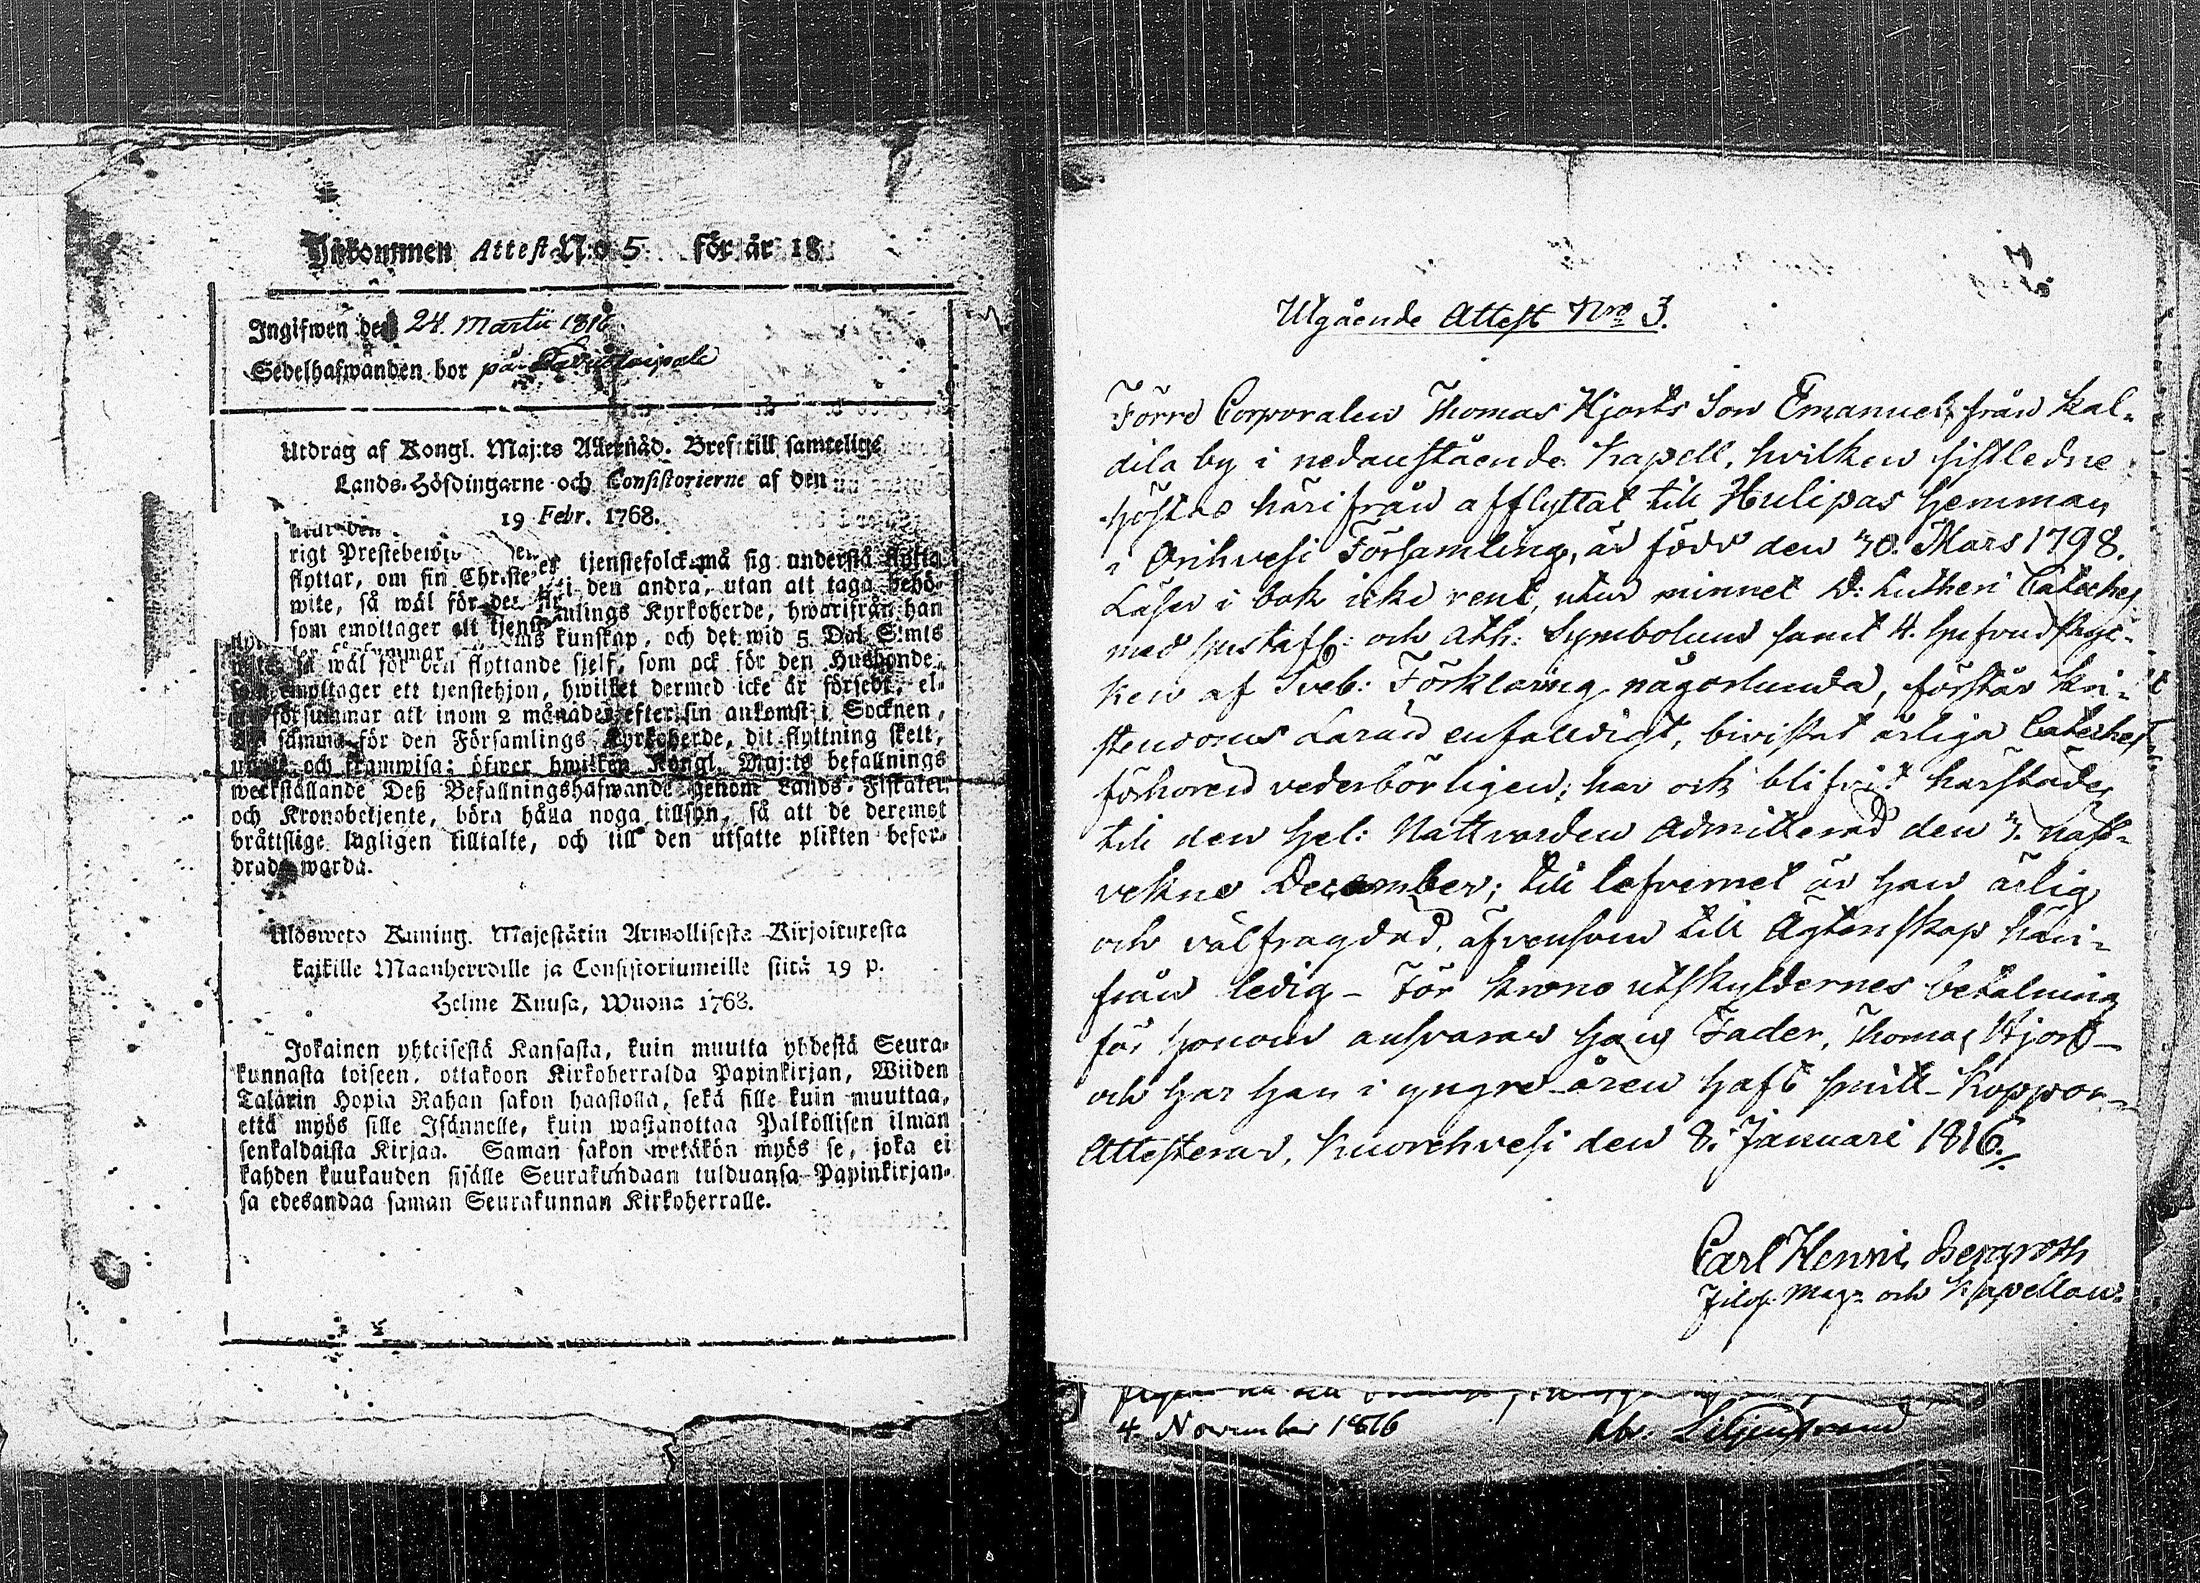 Inkommen Attest N:o 5 för år 18
Ingifwen den 24. Martii 1816
Sedelhafwanden bor på
Utdrag af Kongl. Maj:ts Allernåd. Bref till samtelige
Lands-Höfdingarne och Consistorierne af den
19 Febr. 1768.
rigt Prestebewis tjenstefolck må sig understå flytta
flyttar, om sin Christe i den andra, utan att taga behö-
wite, så wäl för den mlings Kyrkoherde, hwarifrån han
som emottager ett tjenste kunskap, och det wid 5 Dal. S:mts
så wäl för den flyttande sjelf, som ock för den Husbonde,
som emottager ett tjenstehjon, hwilket dermed icke är försedt, el-
försummar att inom 2 månader efter sin ankomst i Socknen,
samma för den Församlings Kyrkoherde, dit flyttning skett,
och framwisa; öfwer hwilken Kongl. Maj:ts befallnings
werkställande Deß Befallningshafwande genom Lands-Fiskaler
och Kronobetjente, böra hålla noga tillsyn, så att de deremot
bråttslige lagligen tilltalte, och till den utsatte plikten befor-
drade warda.
Ulosweto Kuning. Majestätin Armollisesta Kirjoituxesta
kajkille Maanherroille ja Consistoriumeille siitä 19 p.
Helme Kuusa, Wuona 1768.
Jokainen yhteisestä Kansasta, kuin muutta yhdestä Seura-
kunnasta toiseen, ottakoon Kirkoherralda Papinkirjan, Wiiden
Talärin Hopia Rahan sakon haastolla, sekä sille kuin muuttaa,
että myös sille Isännelle, kuin wastanottaa Palkollisen ilman
senkaldaista Kirjaa. Saman sakon wetäkön myös se, joka ei
kahden kuukauden sisälle Seurakundaan tulduansa Papinkirjan-
sa edesandaa saman Seurakunnan Kirkoherralle.
Utgående Attest Nro 3.
Förre Corporalen Thomas Hjorts Son Emanuel, från Kal-
dila by i nedanstående Kapell, hvilken sistledne
höstas härifrån afflyttat till Hulipas hemman
i Orihvesi Församling, är född den 30. Mars 1798.
Läser i bok icke rent, utur minnet D: Lutheri Cateches
med Hustafl: och Ath: Symbolum samt 4. Hufvudstyc-
ken af Sveb: Förklaring någorlunda, förstår Kri-
stendoms Läran enfaldigt, bivistat årliga Cateches
förhören vederbörligen; har ock blifvit härstädes
till den Hel: Nattvarden Admitterad den 3. näst-
vekne December; till lefvernet är han ärlig
och välfrägdad, äfvensom till Ägtenskap häri-
från ledig - För Krono utskyldernes betalning
för honom ansvarar hans Fader, Thomas Hjort -
och har han i yngre åren haft smitt-koppor -
Attesterar, Kuorehvesi den 8. Januari 1816.
Carl Henric Bergroth
Filos. Mag. och Kapellan.
4. November 1816 Ab. Liljenstrand